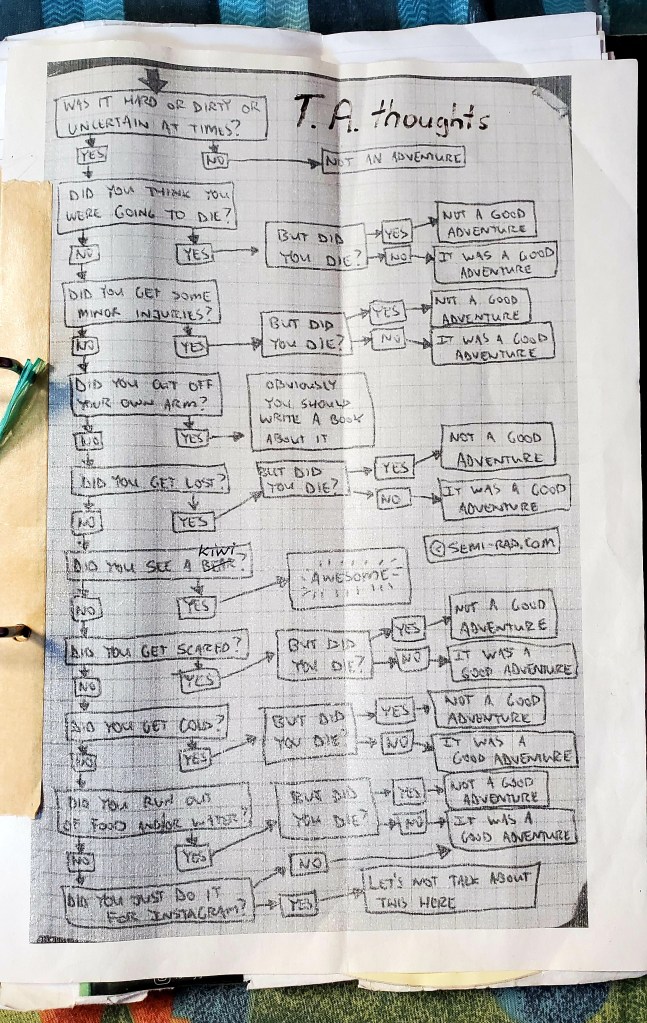 T. A. thoughts
WAS IT HARD OR DIRTY OR
UNCERTAIN AT TIMES?
YES
NO
NOT AN ADVENTURE
DID YOU THINK YOU
WERE GOING TO DIE?
NO
YES
BUT DID
YOU DIE?
YES
NOT A GOOD
ADVENTURE
NO
IT WAS A GOOD
ADVENTURE
DID YOU GET SOME
MINOR INJURIES?
NO
YES
BUT DID
YOU DIE?
YES
NOT A GOOD
ADVENTURE
NO
IT WAS A GOOD
ADVENTURE
DID YOU CUT OFF
YOUR OWN ARM?
NO
YES
OBVIOUSLY
YOU SHOULD
WRITE A BOOK
ABOUT IT
DID YOU GET LOST?
NO
YES
BUT DID
YOU DIE?
YES
NOT A GOOD
ADVENTURE
NO
IT WAS A GOOD
ADVENTURE
© SEMI-RAD.COM
KIWI
DID YOU SEE A BEAR?
NO
YES
AWESOME
DID YOU GET SCARED?
NO
YES
BUT DID
YOU DIE?
YES
NOT A GOOD
ADVENTURE
NO
IT WAS A
GOOD ADVENTURE
DID YOU GET COLD?
NO
YES
BUT DID
YOU DIE?
YES
NOT A GOOD
ADVENTURE
NO
IT WAS A
GOOD ADVENTURE
DID YOU RUN OUT
OF FOOD AND/OR WATER?
NO
YES
BUT DID
YOU DIE?
YES
NOT A GOOD
ADVENTURE
NO
IT WAS A
GOOD ADVENTURE
DID YOU JUST DO IT
FOR INSTAGRAM?
NO
YES
LET'S NOT TALK ABOUT
THIS HERE